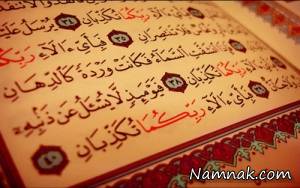 رَبِّكُمَا تُكَذِّبَانِ ٣٤ يُرْسَلُ عَلَيْكُمَا
فَلَا تَنتَصِرَانِ ٣٥ فَبِأَيِّ آلَاءِ رَبِّكُمَا
تُكَذِّبَانِ ٣٦ انشَقَّتِ السَّمَاءُ فَكَانَتْ وَرْدَةً كَالدِّهَانِ
فَبِأَيِّ آلَاءِ رَبِّكُمَا تُكَذِّبَانِ ٣٨ فَيَوْمَئِذٍ لَا يُسْئَلُ عَنْ ذَنْبِهِ
فَبِأَيِّ آلَاءِ رَبِّكُمَا تُكَذِّبَانِ ٤٠
Namnak.com